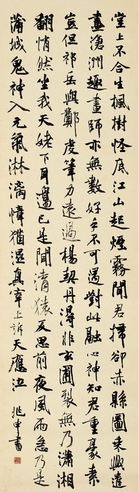 堂上不合生楓樹怪底江山起煙霧聞君掃卻赤縣圖乘興遣
畫滄洲趣畫師亦無數好手不可遇對此融心神知君重毫素
豈但祁岳與鄭虔筆力遠過楊契丹得非玄圃裂無乃瀟湘
翻悄然坐我天姥下耳邊已是聞清猿反思前夜風雨急乃是
蒲城鬼神入元氣淋漓障猶濕真宰上訴天應泣 兆申書